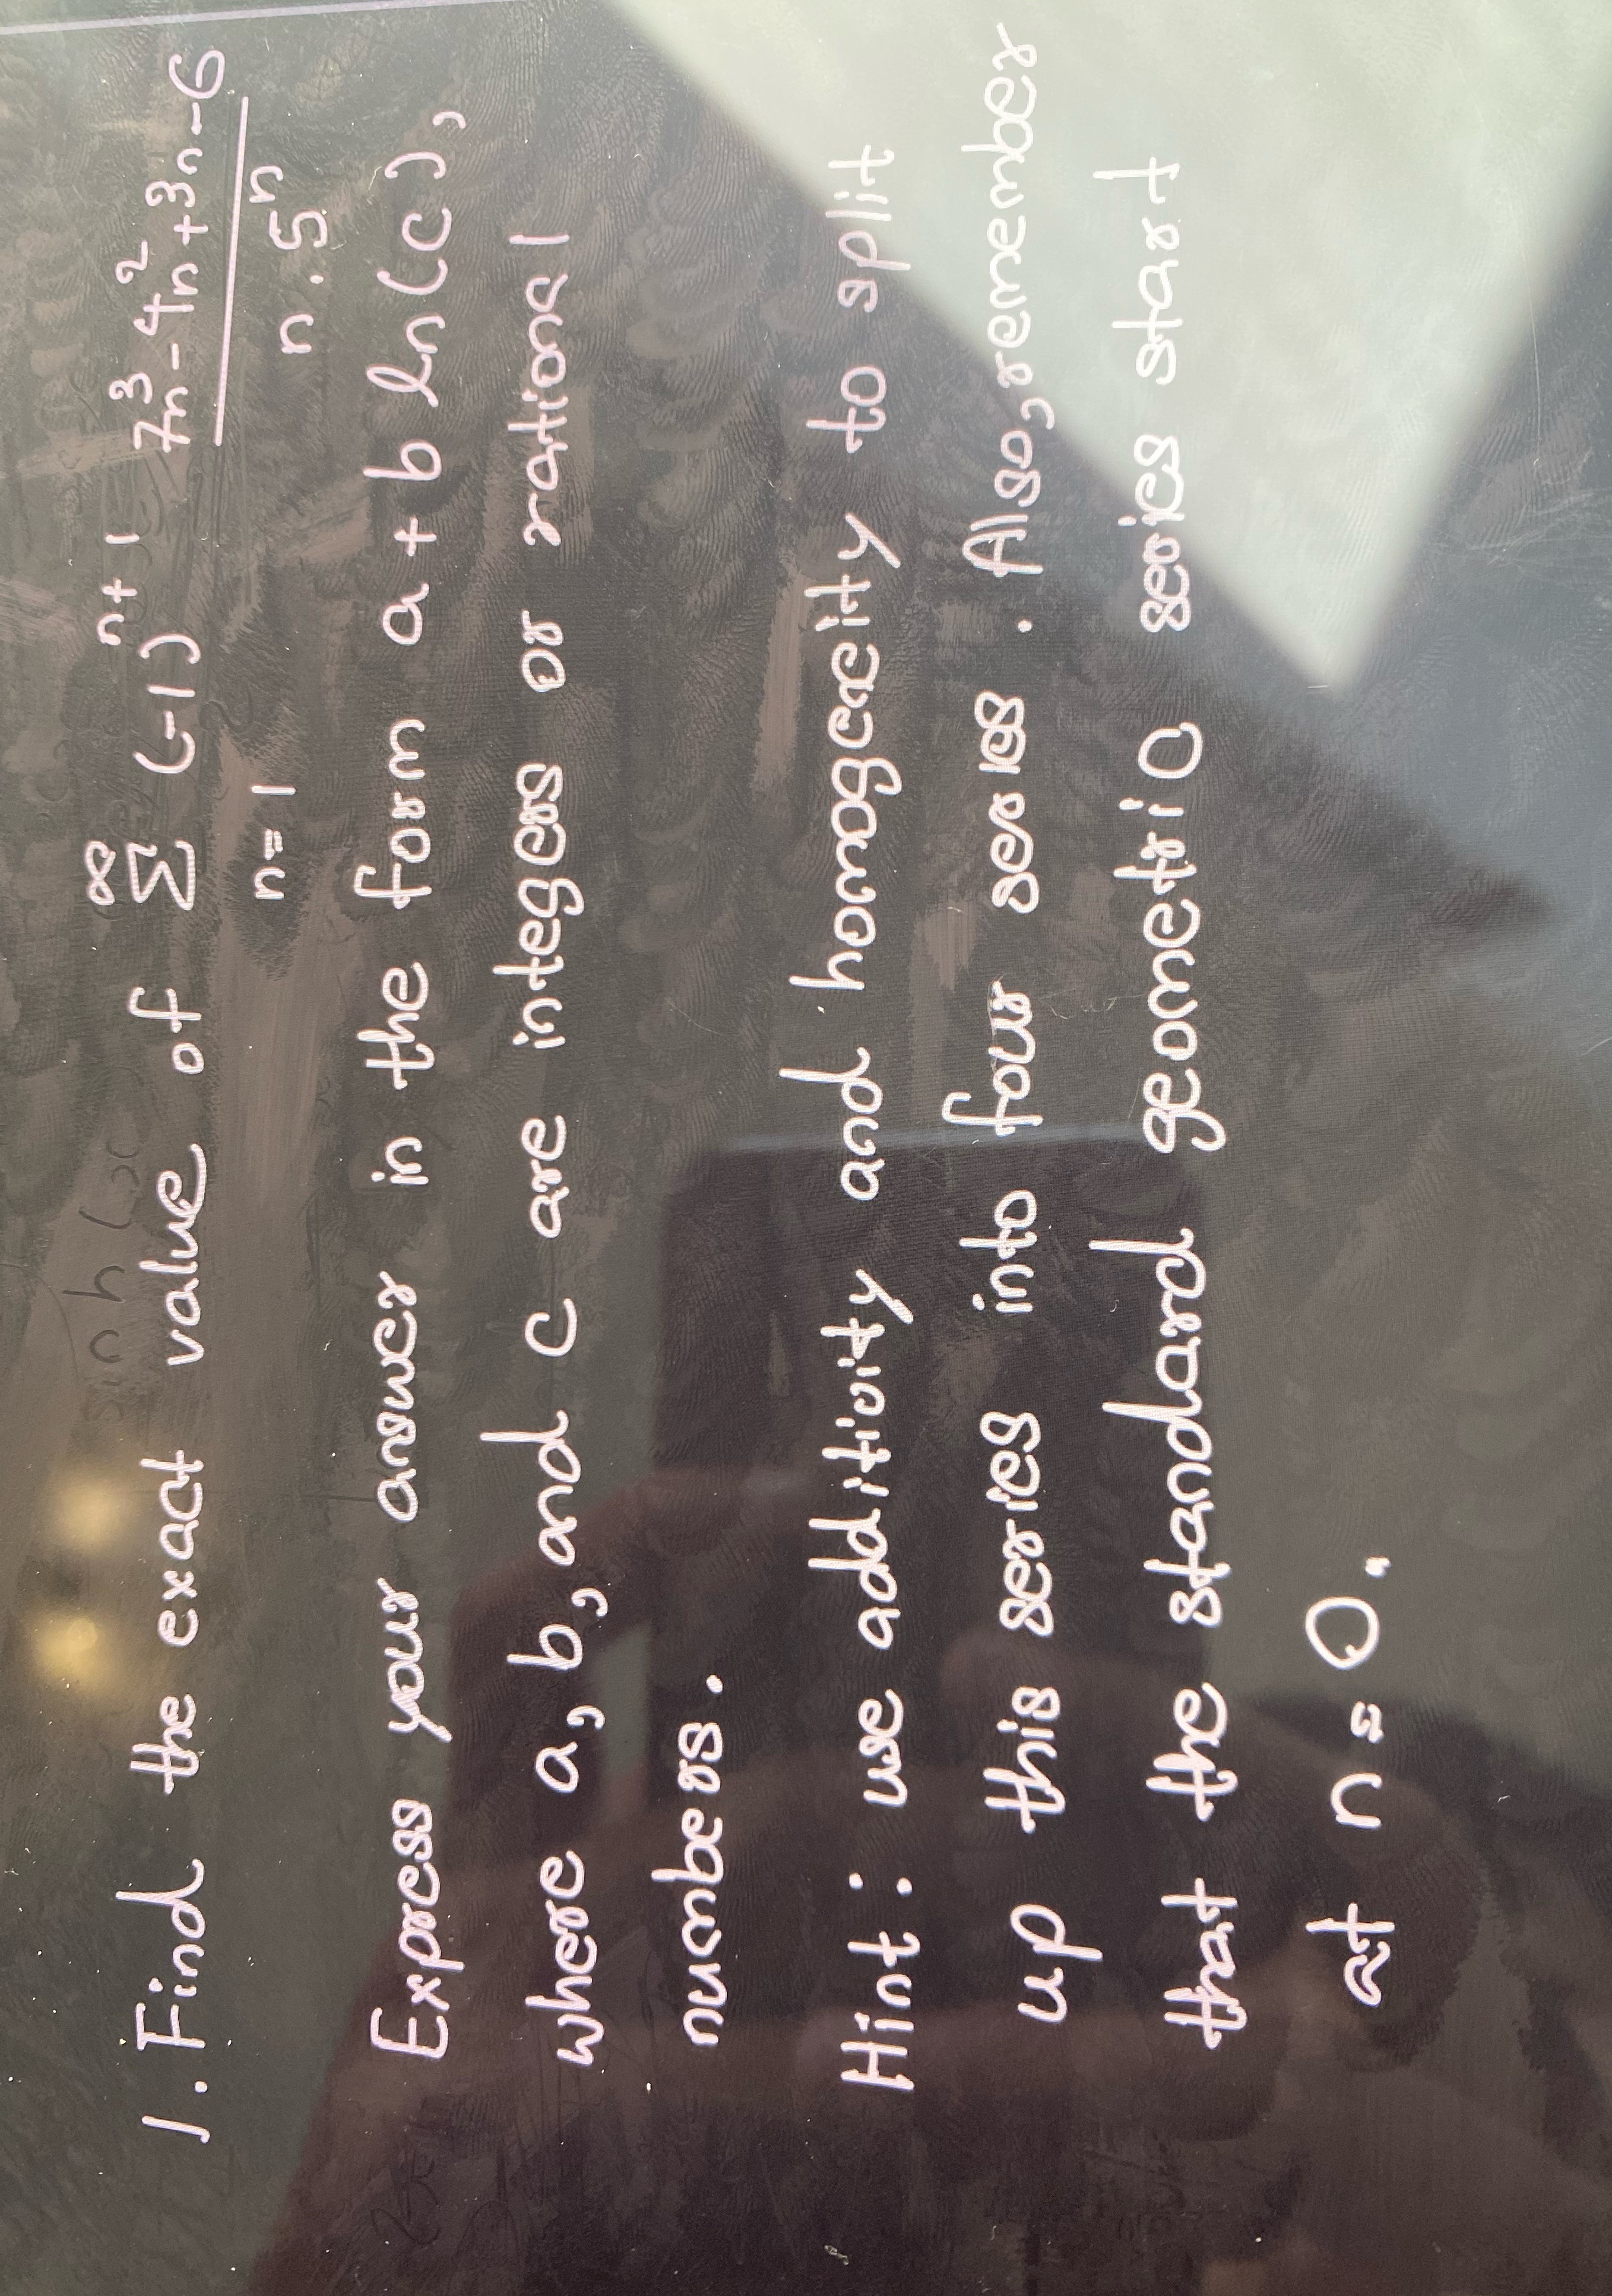 1. Find the exact value of ∞∑n=1 (-1)^(n+1) (7n³-4n²+3n-6)/(n.5ⁿ)
Express your answer in the form a + b ln(c),
where a, b, and c are integers or rational
numbers.
Hint : use additivity and homogeneity to split
up this series into four series . Also, remember
that the standard geometric series start
at n = 0.